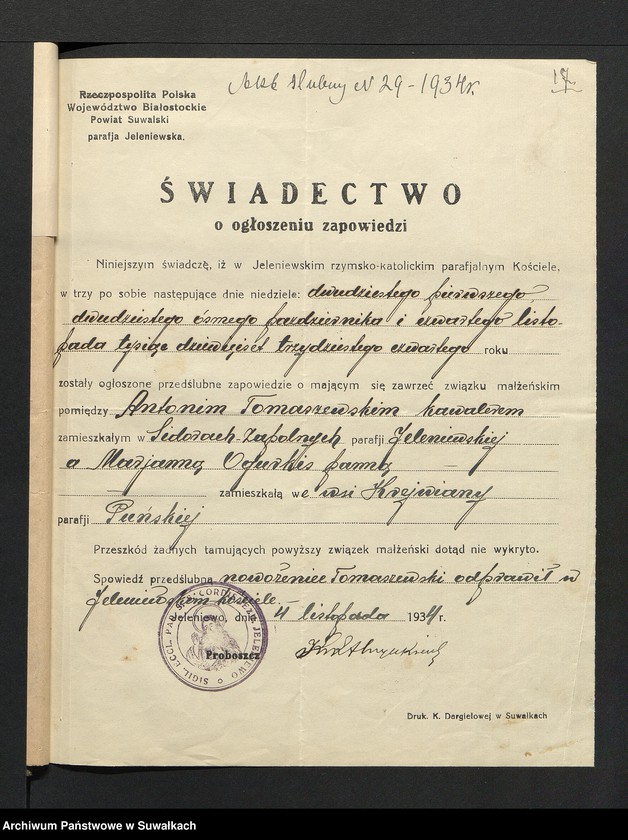 Akt ślubny N 29 - 1934r.
17.
Rzeczpospolita Polska
Województwo Białostockie
Powiat Suwalski
parafja Jeleniewska.
ŚWIADECTWO
o ogłoszeniu zapowiedzi
Niniejszym świadczę, iż w Jeleniewskim rzymsko-katolickim parafjalnym Kościele,
w trzy po sobie następujące dnie niedziele: dwudziestego pierwszego,
dwudziestego ósmego października i czwartego listo-
pada tysiąc dziewięćset trzydziestego czwartego roku
zostały ogłoszone przedślubne zapowiedzie o mającym się zawrzeć związku małżeńskim
pomiędzy Antonim Tomaszewskim kawalerem
zamieszkałym w Sidorach-Zapolnych parafji Jeleniewskiej
a Marjanną Ogurkis panną
zamieszkałą w e wsi Krejwiany
parafji Puńskiej
Przeszkód żadnych tamujących powyższy związek małżeński dotąd nie wykryto.
Spowiedź przedślubną nowożeniec Tomaszewski odprawił w
Jeleniewskim kościele.
Jeleniewo, dnia 4 listopada 1934r.
Proboszcz
SIGIL. ECCL. PAR. CORDIS JEZU JELENIEWO
Druk. K. Dargielowej w Suwałkach
Archiwum Państwowe w Suwałkach